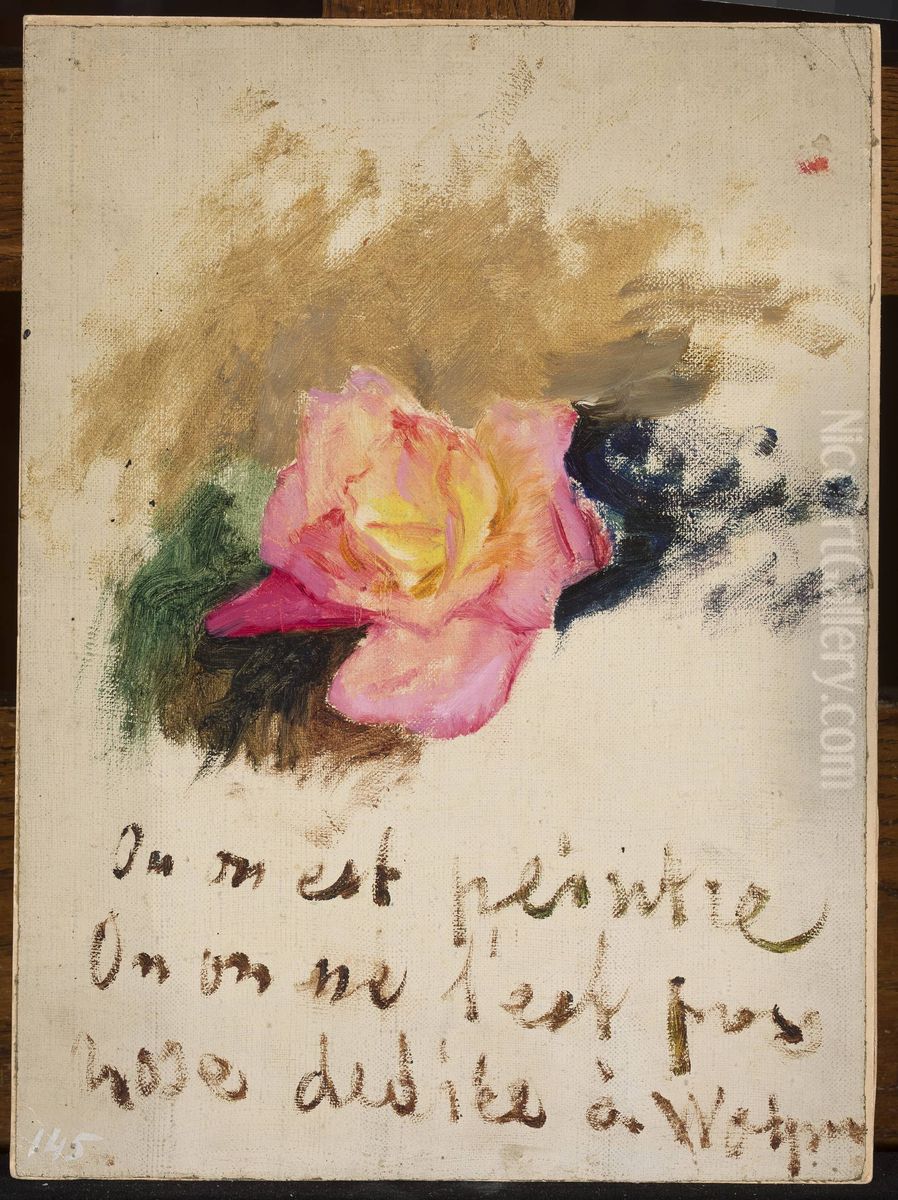 Ou on est peintre
Ou on ne l'est pas
Rose dediée à
145
NiceArtGallery.com